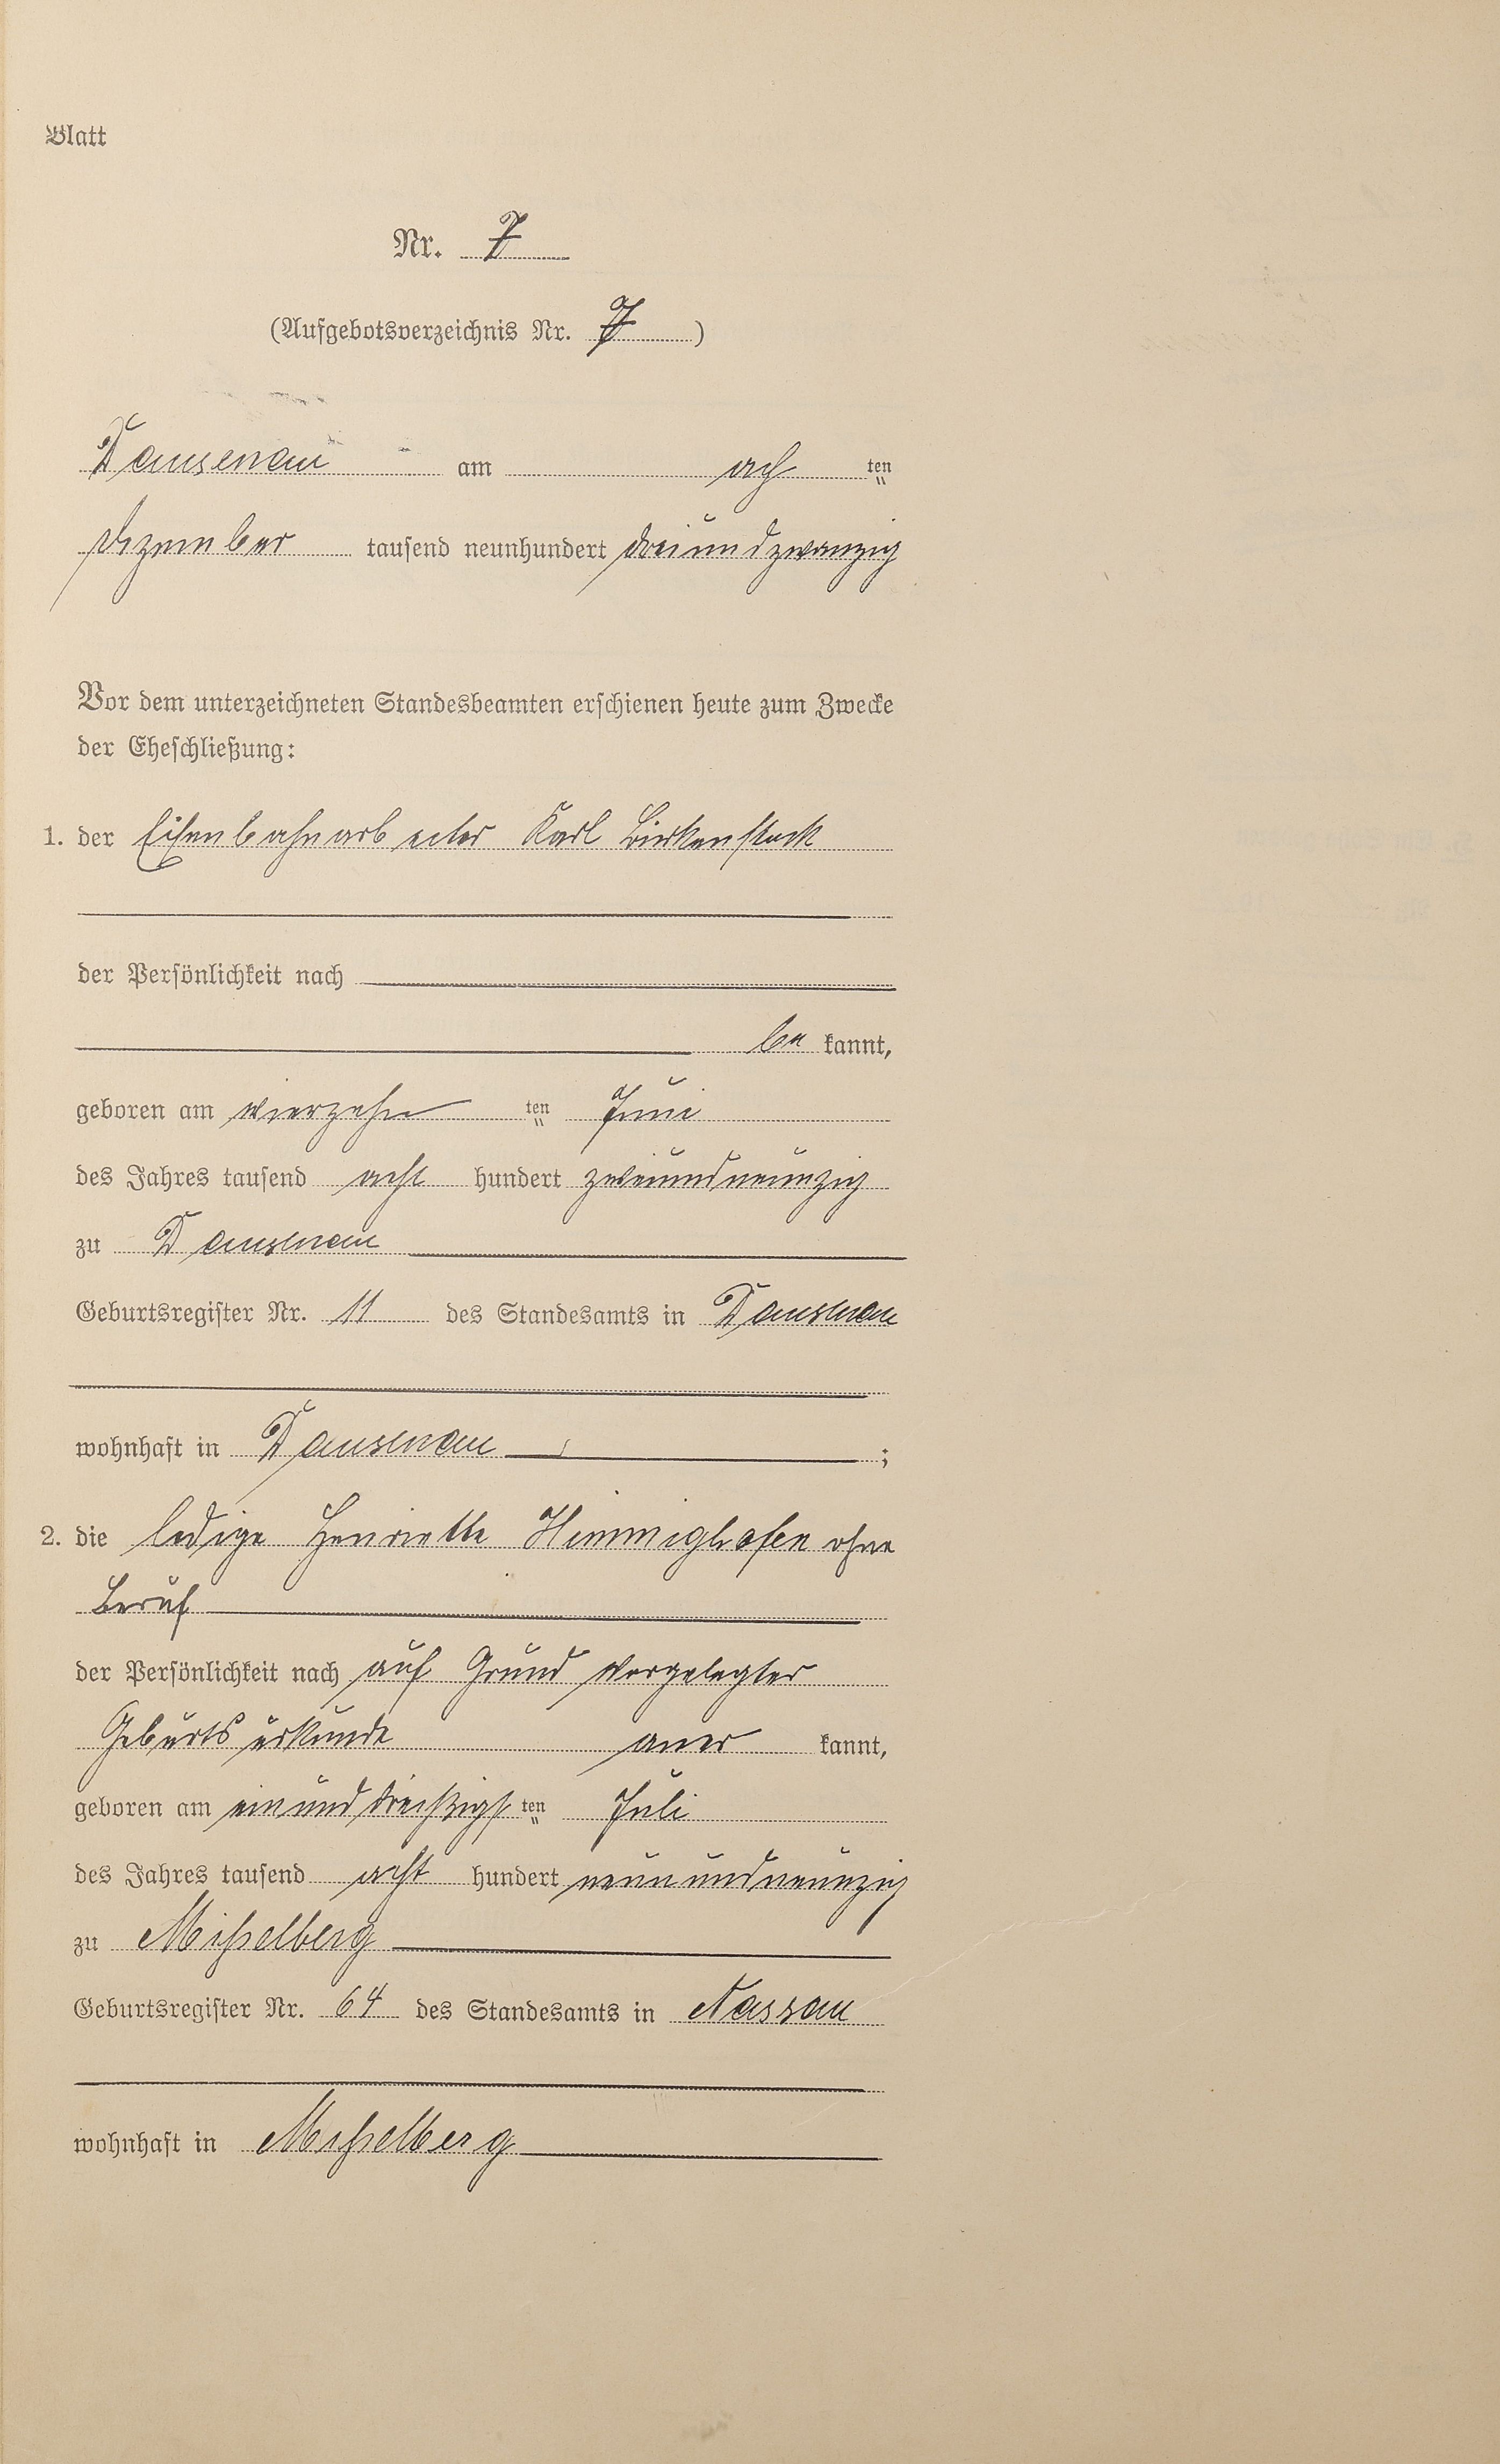 Blatt
Nr. 7
(Aufgebotsverzeichnis Nr. 7)
Dausenau am ach ten
Dezember tausend neunhundert dreiundzwanzig
Vor dem unterzeichneten Standesbeamten erschienen heute zum Zwecke
der Eheschließung:
1. der Eisenbahnarbeiter Karl Birkenstock
der Persönlichkeit nach
be kannt,
geboren am vierzehn ten Juni
des Jahres tausend acht hundert zweiundneunzig
zu Dausenau
Geburtsregister Nr. 11 des Standesamts in Dausenau
wohnhaft in Dausenau ;
2. die ledige Henriette Himmighofen ohne
Beruf
der Persönlichkeit nach auf Grund vorgelegter
Geburtsurkunde aner kannt,
geboren am einunddreißigs ten Juli
des Jahres tausend acht hundert neunundneunzig
zu Mißelberg
Geburtsregister Nr. 64 des Standesamts in Nassau
wohnhaft in Mißelberg